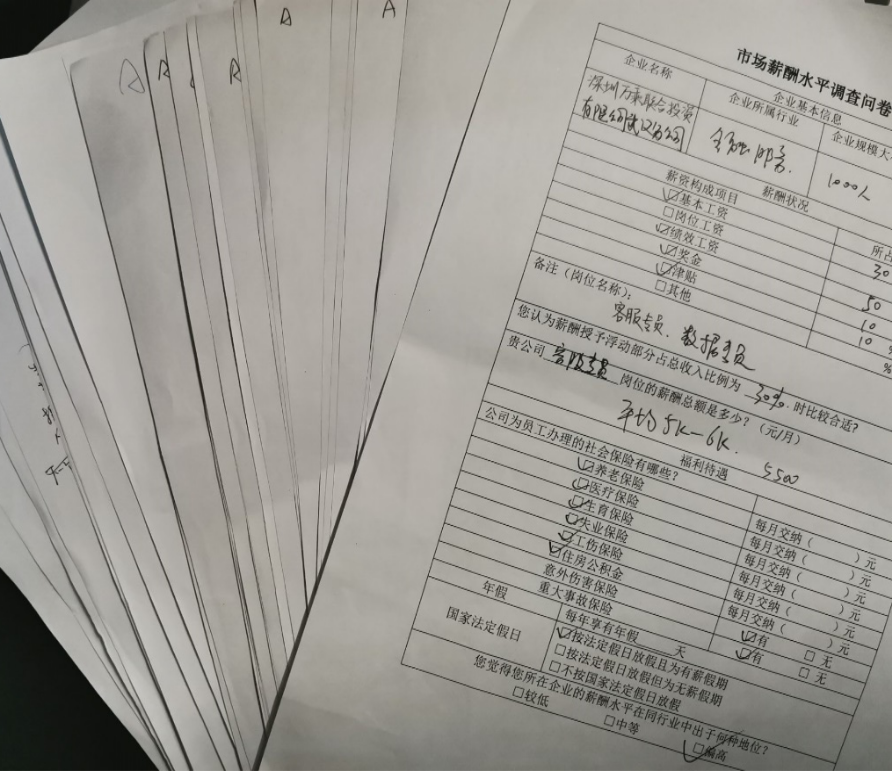 A
A
A
A
A
市场薪酬水平调查问卷
企业基本信息
企业名称
企业所属行业
企业规模大
深圳万乘联合投资
有限公司武汉分公司
1000人
薪酬状况
薪资构成项目
所占
☑基本工资
30
□岗位工资
☑绩效工资
50
☑奖金
10
☑津贴
10 %
□其他
%
备注（岗位名称）：
客服专员、数据专员
您认为薪酬授予浮动部分占总收入比例为 30% 时比较合适?
贵公司 客服专员 岗位的薪酬总额是多少?（元/月）
平均5K-6K.
5500
福利待遇
公司为员工办理的社会保险有哪些?
☑养老保险
每月交纳（ ）元
☑医疗保险
每月交纳（ ）元
☑生育保险
每月交纳（ ）元
☑失业保险
每月交纳（ ）元
☑工伤保险
每月交纳（ ）元
☑住房公积金
每月交纳（ ）元
意外伤害保险
☑有 □无
重大事故保险
☑有 □无
年假
每年享有年假 天
国家法定假日
☑按法定假日放假且为有薪假期
□按法定假日放假但为无薪假期
□不按国家法定假日放假
您觉得您所在企业的薪酬水平在同行业中出于何种地位?
□较低
□中等
☑偏高